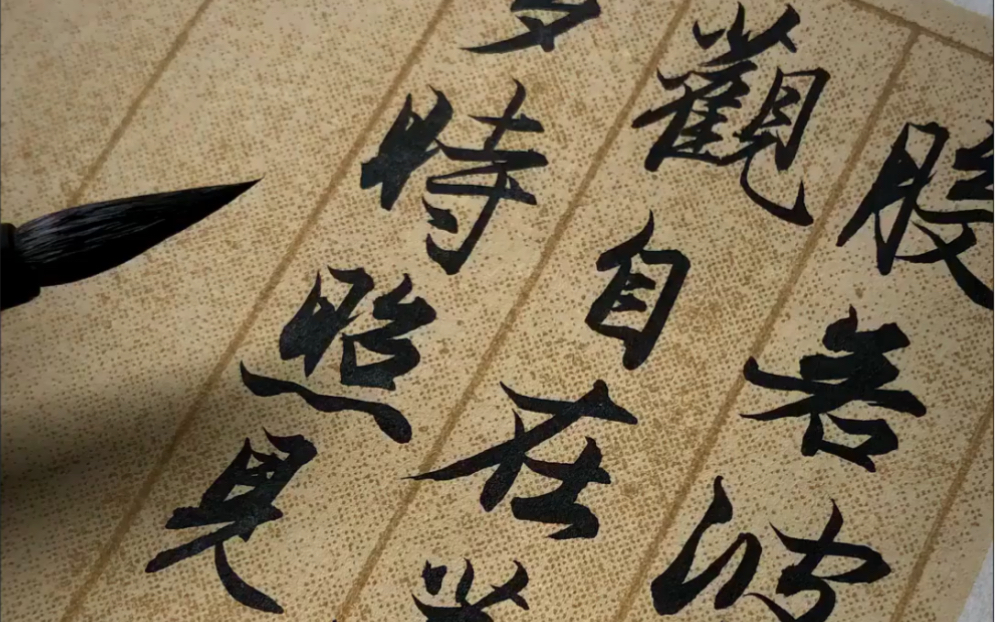 般若波
觀自在
多時照見